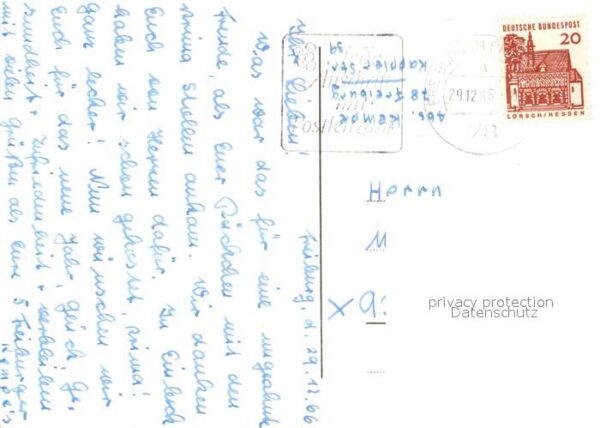 Freiburg, d. 29.12.66
Ihr Lieben!
Was war das für eine ungeahnte
Freude, als Euer Päckchen mit den
prima Stollen ankam. Wir danken
Euch von Herzen dafür. Im Eischrank
haben wir schon gekostet, prima!
ganz lecker! Nun wünschen wir
Euch für das neue Jahr, Glück, Ge-
sundheit + Zufriedenheit + verbleiben
mit vielen Grüßen als eure 5 Freiburger
Kempe's
Abs. Kempe
78 Freiburg
Kappler Str.
59
Postleitzahl
29.12.66
78
DEUTSCHE BUNDESPOST
20
LORSCH/HESSEN
Herrn
M
X 9
privacy protection
Datenschutz